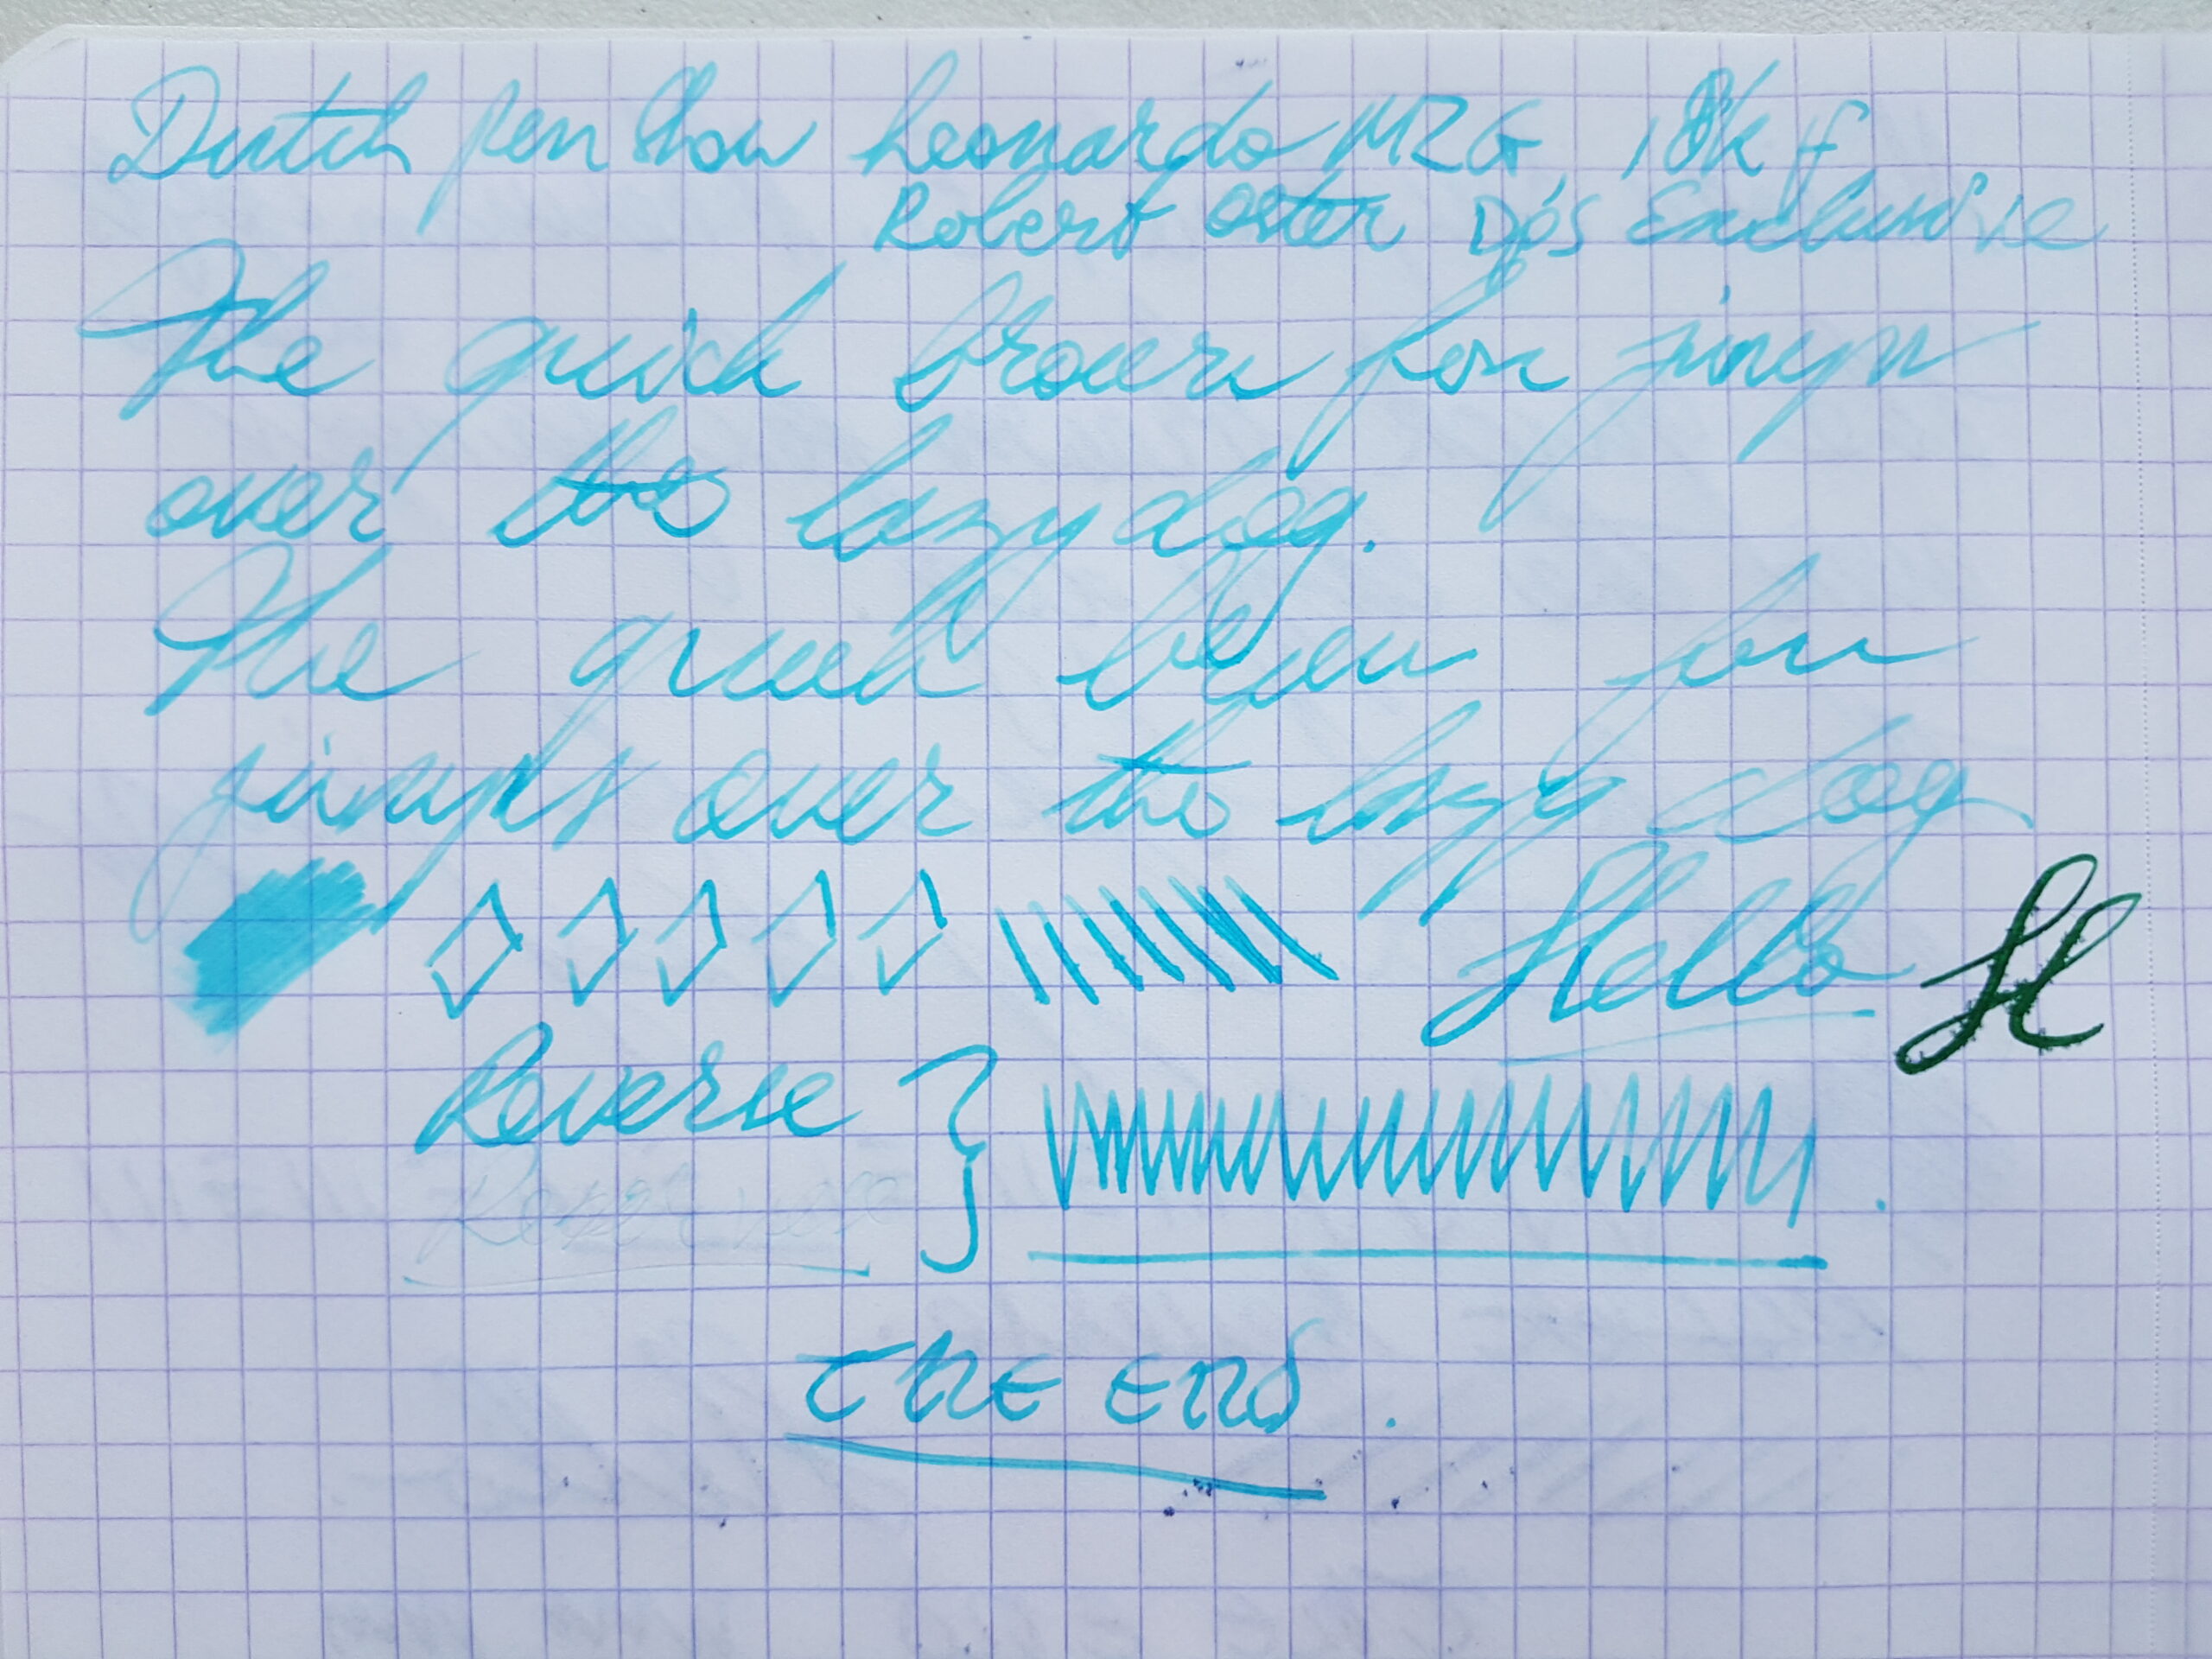 Dutch pen Show Leonardo MZG 18k f
Robert Oster DPS Exclusive
The quick brown fox jumps
over the lazy dog.
The quick brown fox
jumps over the lazy dog
Hello H
Reverse
The End.